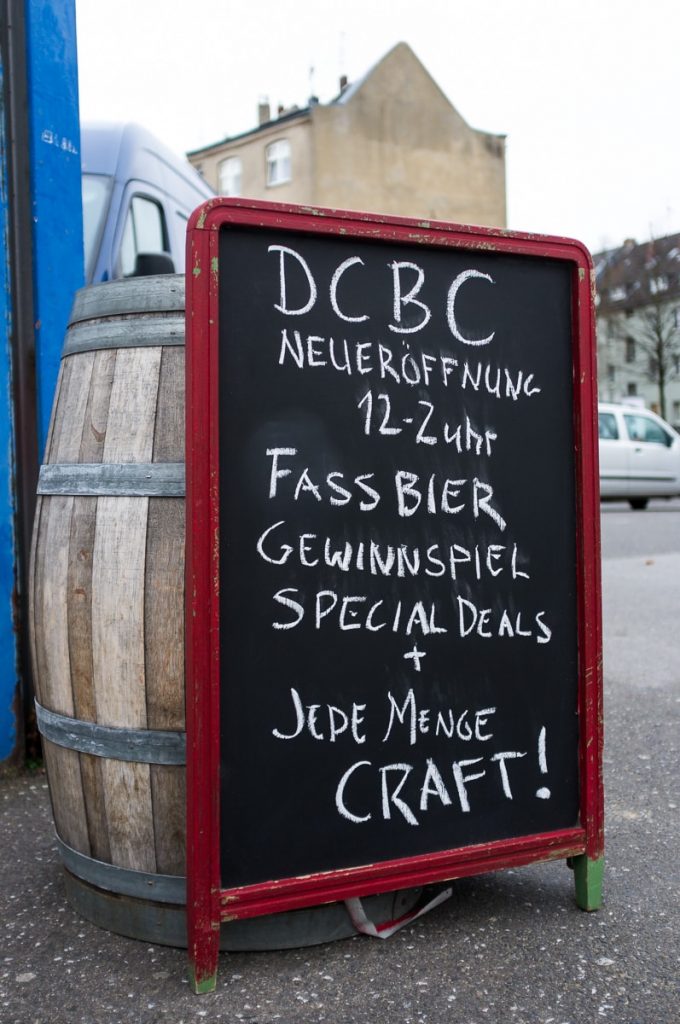 DCBC
NEUERÖFFNUNG
12-2 uhr
FASS BIER
GEWINNSPIEL
SPECIAL DEALS
+
JEDE MENGE
CRAFT!